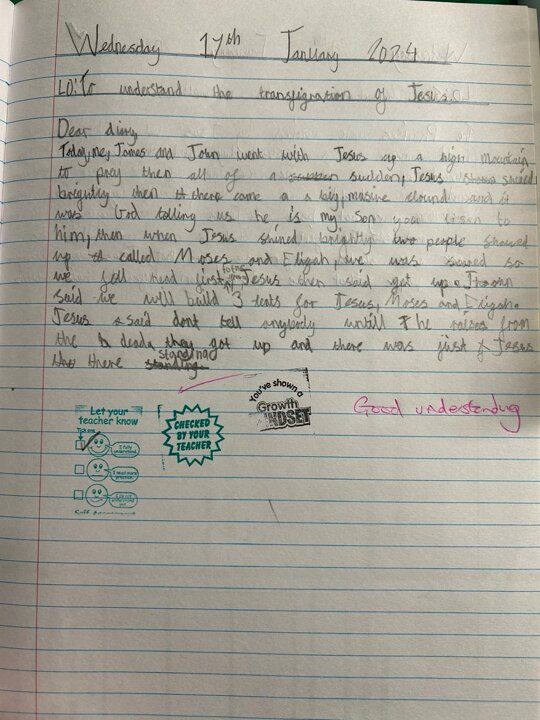 Wednesday 17th January 2024
LO: To understand the transfigration of Jesus.
Dear diary
Today, me, James and John went with Jesus up a high mountain
to pray then all of a sudden, Jesus shined
brightly then there came a big, masive cloud and it
was God telling us he is my Son you lisen to
him, then when Jesus shined brightly two people showed
up called Moses and Eligah, we was scared so
we fell head first to the ground Jesus then said get up.
said we will build 3 tents for Jesus, Moses and Eligah.
Jesus said dont tell anybody untill he raises from
the dead, they got up and there was just Jesus
there standing
You've shown a
Growth
MINDSET
Good understanding
Let your
teacher know
Tick one
I fully
understand
I need more
practice
CHECKED
BY YOUR
TEACHER